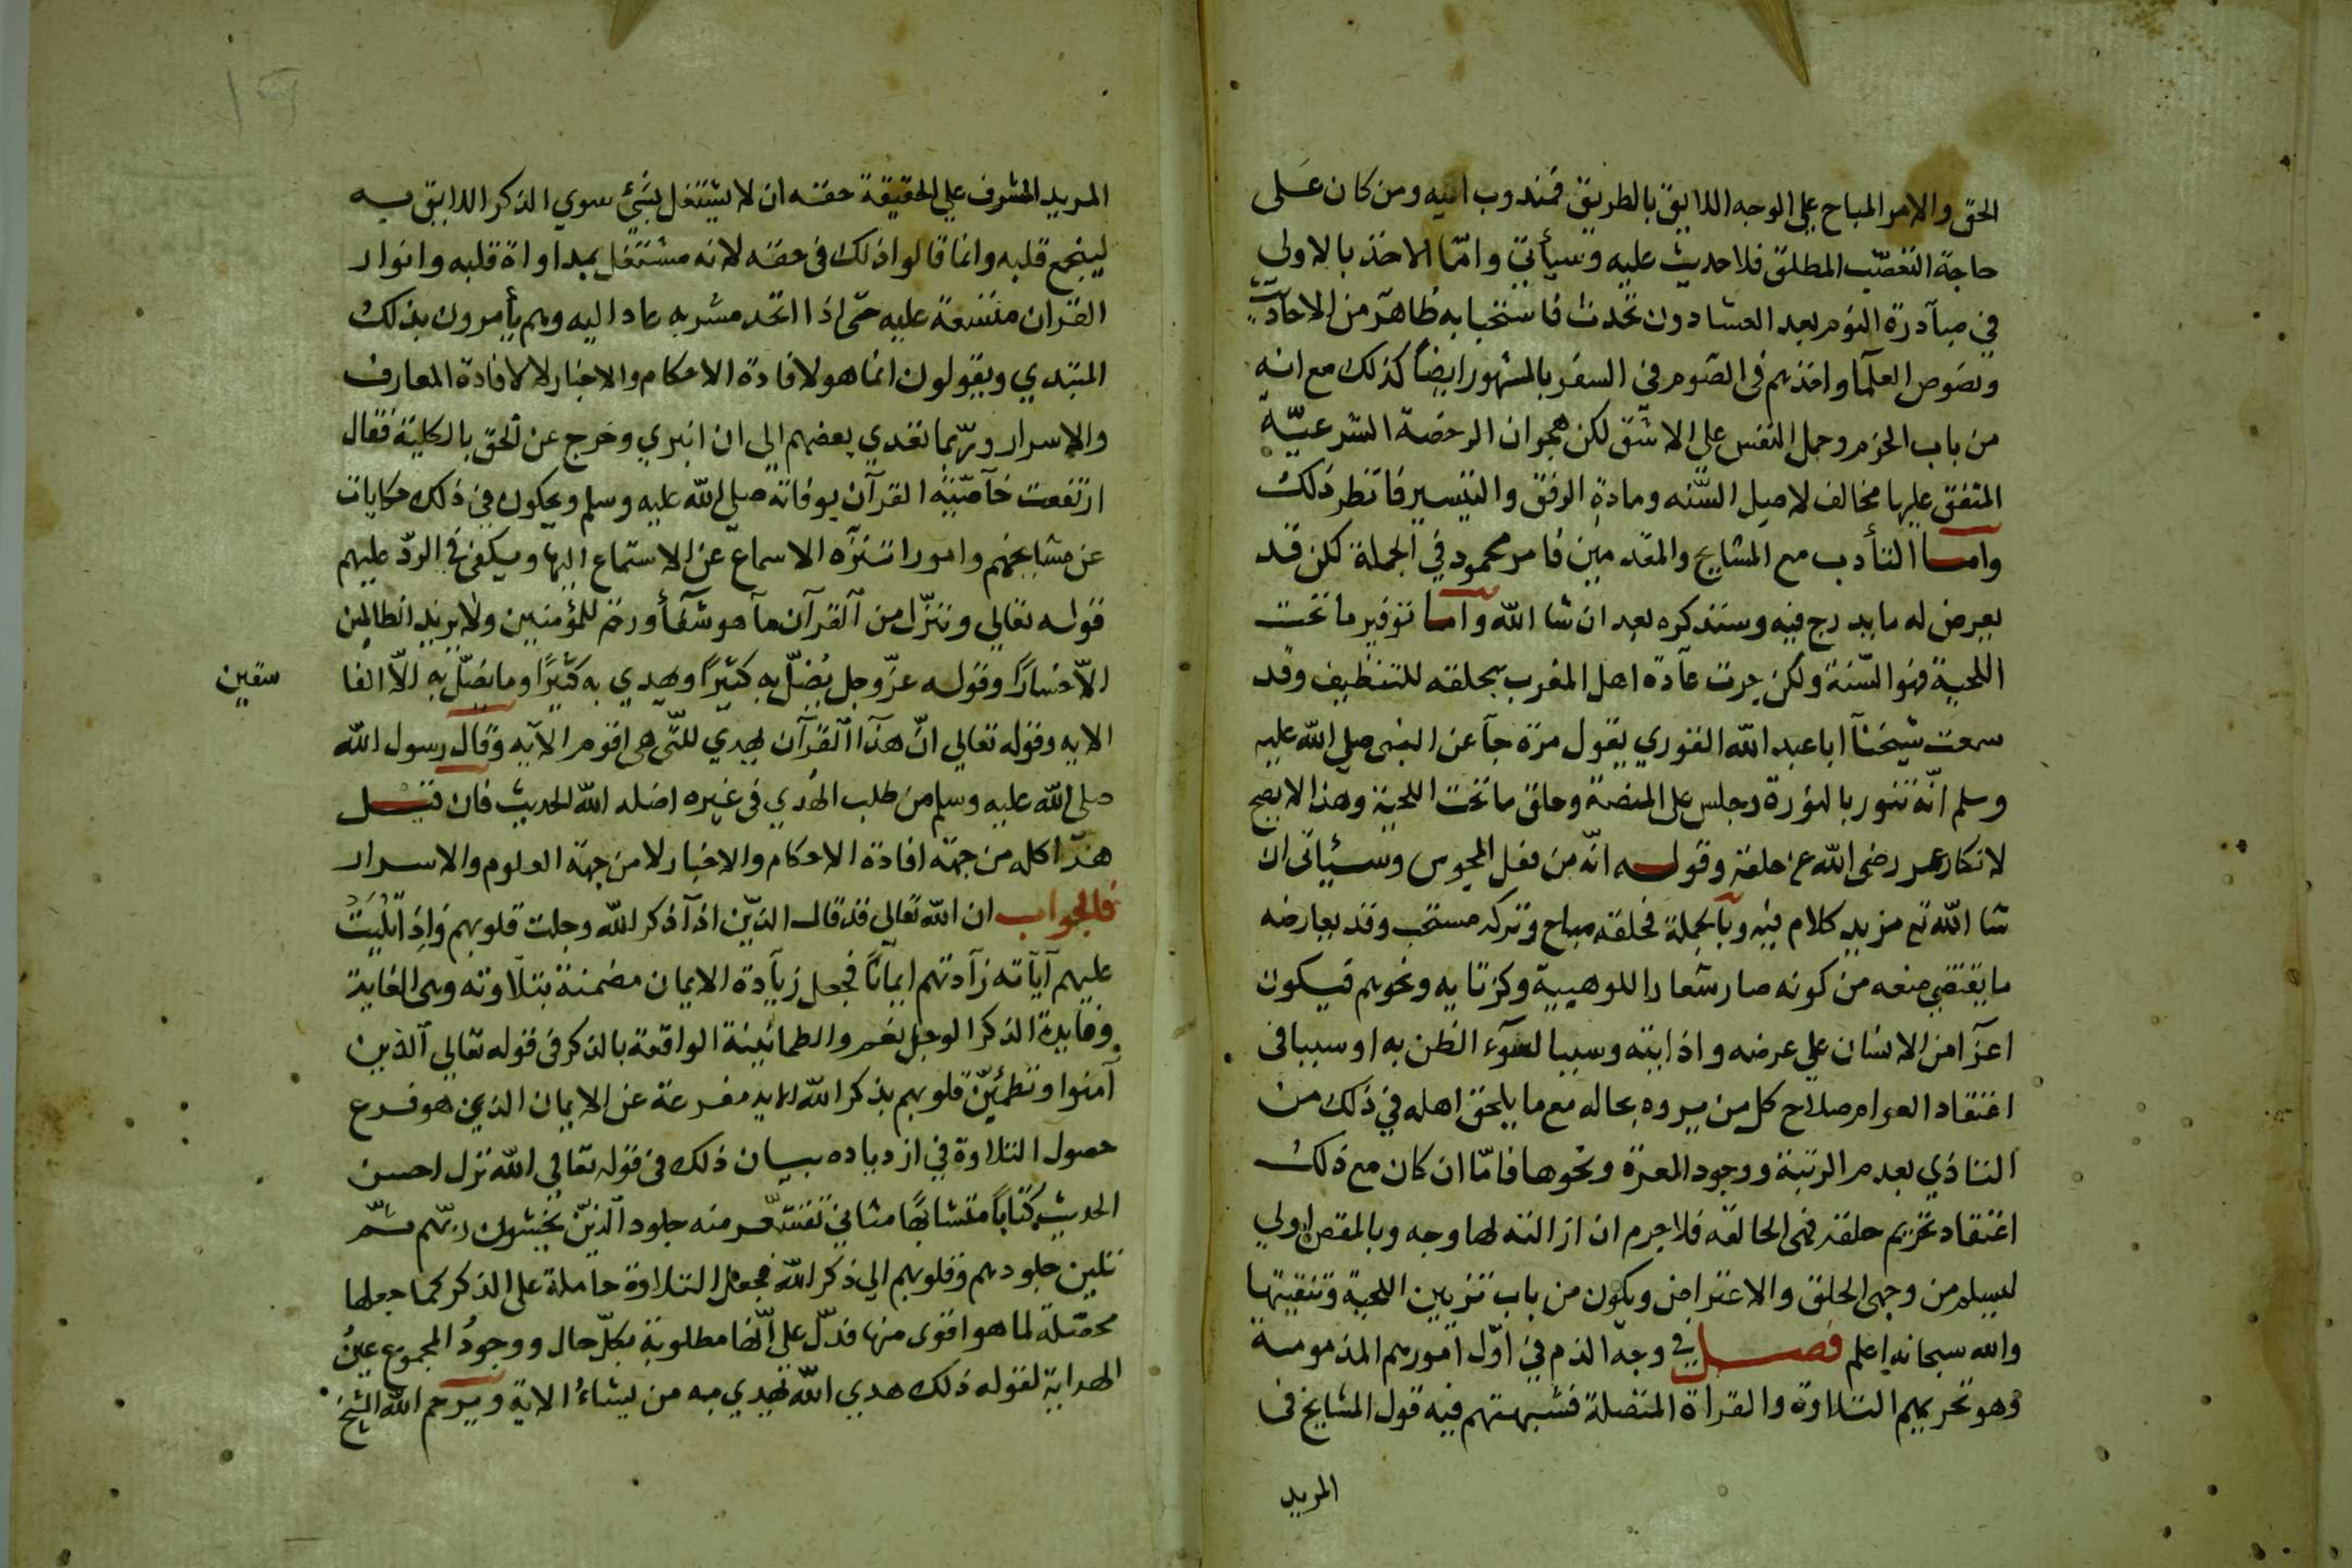 الحق والامر المباح علي الوجه اللايق بالطريق فمندوب اليه ومن كان على
حاجة التعصب المطلق فلا حديث عليه وسيأتي وامّا الاخذ بالاولي
في مبآدرة النوم بعد العشا دون تحدث فاستحبابه ظاهر من الاحاديث
ونصوص العلمآ واخذهم في الصوم في السفر بالمشهور ايضاً كذلك مع انه
من باب الحزم وحمل النفس على الاشق لكن هجران الرخصة الشرعيّة
المتفق عليها مخالف لاصل السّنه ومادة الرفق والتيسير فانظر ذلك
وامسا التأدب مع المشايخ والمقدمين فامر محمود في الجملة لكن قد
يعرض له ما يدرج فيه وسنذكره بعد ان شا الله واما توفير ما تحت
اللحية فهو السّنة ولكن جرت عآدة اهل المغرب بحلقه للتنظيف وقد
سمعت شيخنآ ابا عبد الله القوري يقول مرة جآ عن النبى صلي الله عليه
وسلم انّه تنور بالنورة وجلس على المنصة وحلق ما تحت اللحية وهذا لا يصح
لانكار عمر رضى الله عن حلقه وقوله انّه من فعل المجوس وسيأتى ان
شا الله تع مزيد كلام فيه وبالجملة فحلقه مباح وتركه مستحب وقد يعارضه
ما يقتضي منعه من كونه صار شعارا للوهيبية وكزتايه ونحوهم فيكون
اعزآ من الانسان علي عرضه واذايته وسببا لسوء الظن به او سببا فى
اعتقاد العوام صلاح كل من يروه بحاله مع ما يلحق اهله في ذلك من
التاذي بعدم الرتبة ووجود المعرة ونحوها فامّا ان كان مع ذلك
اعتقاد تحريم حلقه فهى الحالقه فلا جرم ان ازالته لها وجه وبالمقص اولي
ليسلم من وجهى الحلق والاعتراض ويكون من باب تزيين اللحية وتنقيتها
والله سبحانه اعلم فصل في وجه الذم في اوّل امورهم المذمومة
وهو تحريمهم التلاوة والقراة المتصلة فشبهتهم فيه قول المشايخ فى
المريد
المريد المشرف علي الحقيقة حقه ان لا يشتغل بشئ سوي الذكر اللايق به
ليجمع قلبه وانما قالوا ذلك فى حقه لانه مشتغل بمداواة قلبه وانوار
القران متسعة عليه حتى اذا اتحد مشربه عاد اليه وهم يأمرون بذلك
المبتدي ويقولون انما هو لافادة الاحكام والاخبار لا لافادة المعارف
والاسرار وربّما تعدي بعضهم الى ان انبري وخرج عن الحق بالكلية فقال
ارتفعت خآصّيته القرآن بوفاته صلى الله عليه وسلم ويحكون في ذلك حكايات
عن مشايخهم وامورا تنزه الاسماع عن الاستماع اليها ويكفى في الردّ عليهم
قوله تعالي وننزّل من القرآن مآ هو شفآء ورحمة للمؤمنين ولا يزيد الظالمين
الاّ خسارًا وقوله عزّ وجل يُضلّ به كثيرًا ويهدي به كثيرًا وما يضلّ به الاّ الفا
سقين
الايه وقوله تعالي انّ هذا القرآن يهدي للتّى هى اقوم الآيه وقال رسول الله
صلى الله عليه وسلم من طلب الهُدي فى غيره اضله الله الحديث فان قيل
هذا كله من جهة افادة الاحكام والاخبار لا من جهة العلوم والاسرار
فالجواب ان الله تعالى قد قال الذين اذآ ذكر الله وجلت قلوبهم واذا تُليَتْ
عليهم آياته زآدتهم ايمانًا فجعل زيآدة الايمان مضمنة بتلآوته وهى الغاية
وفايدة الذكر الوجل نعم والطمانينة الواقعة بالذكر فى قوله تعالي آلذين
آمنوا وتطمئنّ قلوبهم بذكر الله الايه مفرعة عن الايمان الذي هو فرع
حصول التلاوة في ازدياده بيان ذلك فى قوله تعالي الله نزل احسن
الحديث كتاباً متشابهًا مثاني تقشعر منه جلود الذين يخشون ربّهم ثمّ
تلين جلودهم وقلوبهم الي ذكر الله فجعل التلاوة حاملة على الذكر كما جعلها
محصّلة لما هو اقوى منها فدلّ على انّها مطلوبة بكلّ حال ووجودُ المجموع عينُ
الهداية لقوله ذلك هدي الله يهدي به من يشاءُ الاية ويرحم الله الشيخ